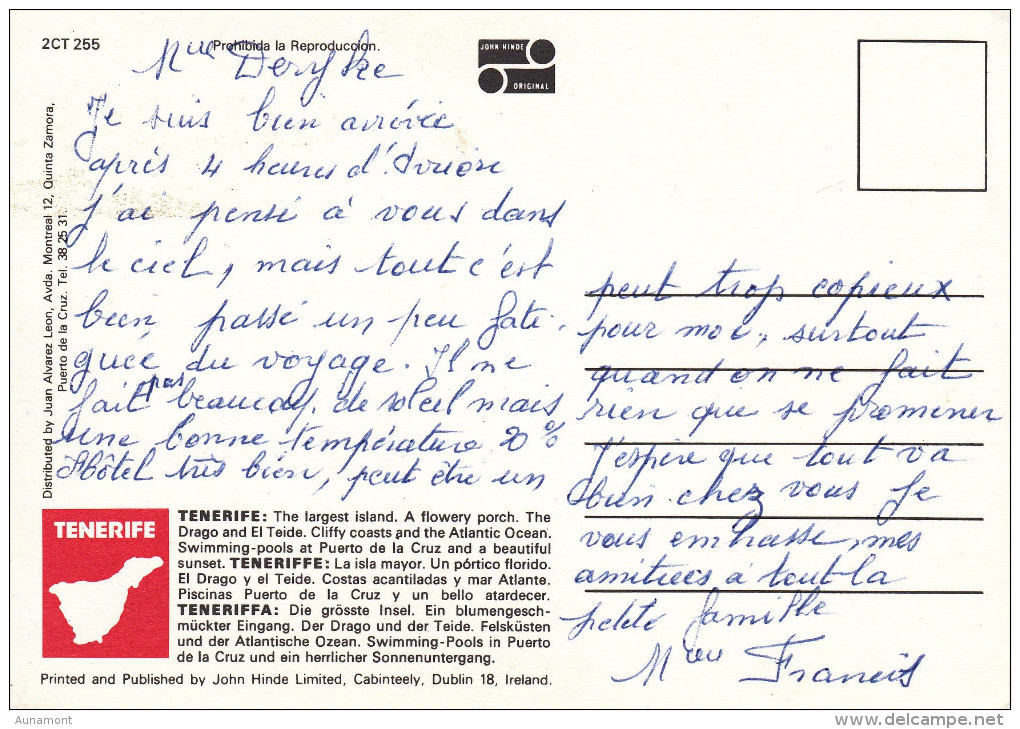 2CT 255
Prohibida la Reproduccion.
JOHN HINDE
ORIGINAL
Distributed by Juan Alvarez Leon, Avda. Montreal 12, Quinta Zamora,
Puerto de la Cruz. Tel. 38 25 31.
Mme Deryke
Je suis bien arrivée
après 4 heures d'Avion
J'ai pensé à vous dans
le ciel, mais tout c'est
bien passé un peu fati-
guée du voyage. Il ne
fait pas beaucoup de soleil mais
une bonne température 20%
Hôtel très bien, peut être un
peut trop copieux
pour moi, surtout
quand on ne fait
rien que se promener
J'espère que tout va
bien chez vous Je
vous embrasse, mes
amitiées à tout la
petite famille
Mme Francis
TENERIFE
TENERIFE: The largest island. A flowery porch. The
Drago and El Teide. Cliffy coasts and the Atlantic Ocean.
Swimming-pools at Puerto de la Cruz and a beautiful
sunset. TENERIFFE: La isla mayor. Un pórtico florido.
El Drago y el Teide. Costas acantiladas y mar Atlante.
Piscinas Puerto de la Cruz y un bello atardecer.
TENERIFFA: Die grösste Insel. Ein blumengesch-
mückter Eingang. Der Drago und der Teide. Felsküsten
und der Atlantische Ozean. Swimming-Pools in Puerto
de la Cruz und ein herrlicher Sonnenuntergang.
Printed and Published by John Hinde Limited, Cabinteely, Dublin 18, Ireland.
Aunamont
www.delcampe.net